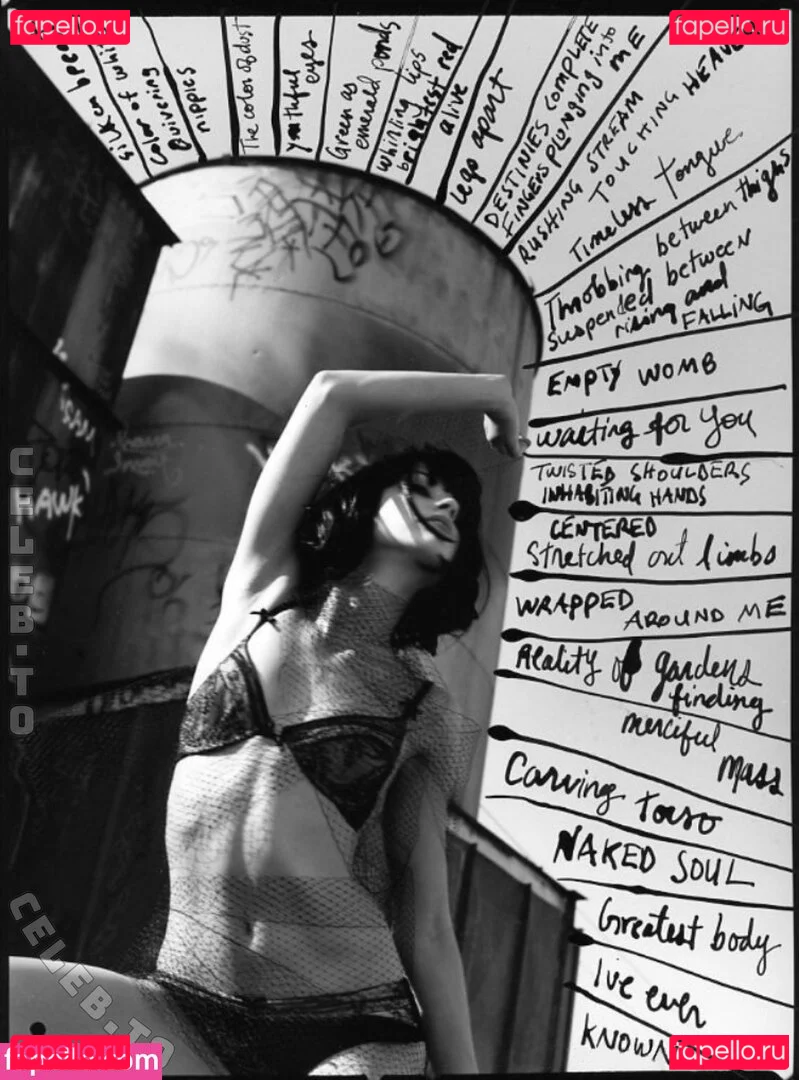 fapello.ru
fapello.ru
Silken
Color of
Quivering
nipples
The color of dust
youthful
eyes
Green as
emerald ponds
whirling lips
brightest red
alive
legs apart
DESTINIES COMPLETE
FINGERS PLUNGING into
ME
RUSHING STREAM
TOUCHING HEAVE
Timeless tongue
Throbbing between thighs
suspended between
rising and
FALLING
EMPTY WOMB
waiting for you
TWISTED SHOULDERS
INHABITING HANDS
CENTERED
Stretched out limbs
WRAPPED AROUND ME
Reality of gardens
finding
merciful
Mass
Carving torso
NAKED SOUL
Greatest body
I've ever
KNOWN
HAWK
CELEB.TO
CELEB.TO
fapello.ru
fapello.ru